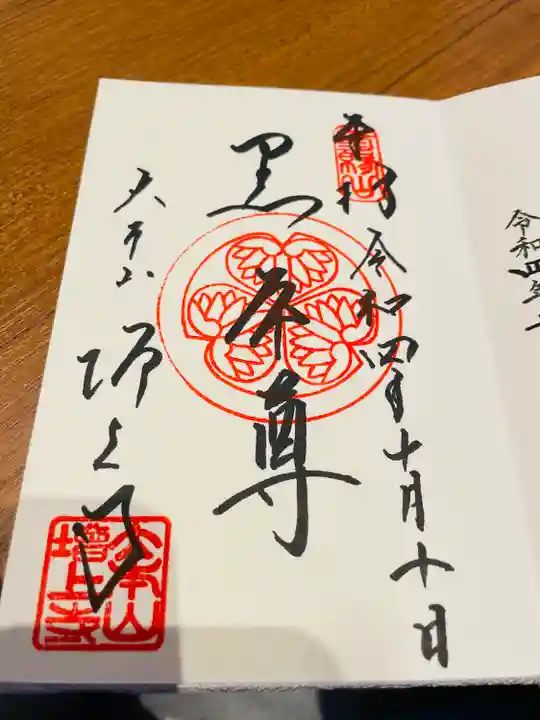 奉拝 令和四年十月十日
黒本尊
大本山 増上寺
大本山
増上寺
令和四年十